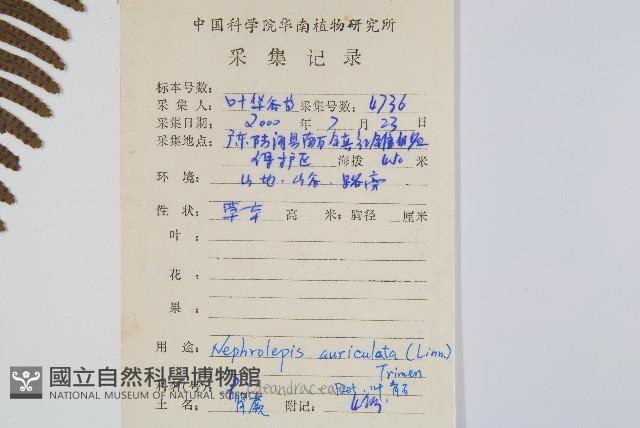 中国科学院华南植物研究所
采 集 记 录
标本号数：
采 集 人：叶华谷 采集号数：4736
采集日期：2000 年 7 月 23 日
采集地点：广东
保护区 海拔 450 米
环 境：山地．山谷．路旁
性 状：草本 高 米；胸径 厘米
叶：
花：
果：
用 途：Nephrolepis auriculata (Linn.)
Trimen
Det. 叶育石
土 名：肾蕨 附记：
國立自然科學博物館
NATIONAL MUSEUM OF NATURAL SCIENCE